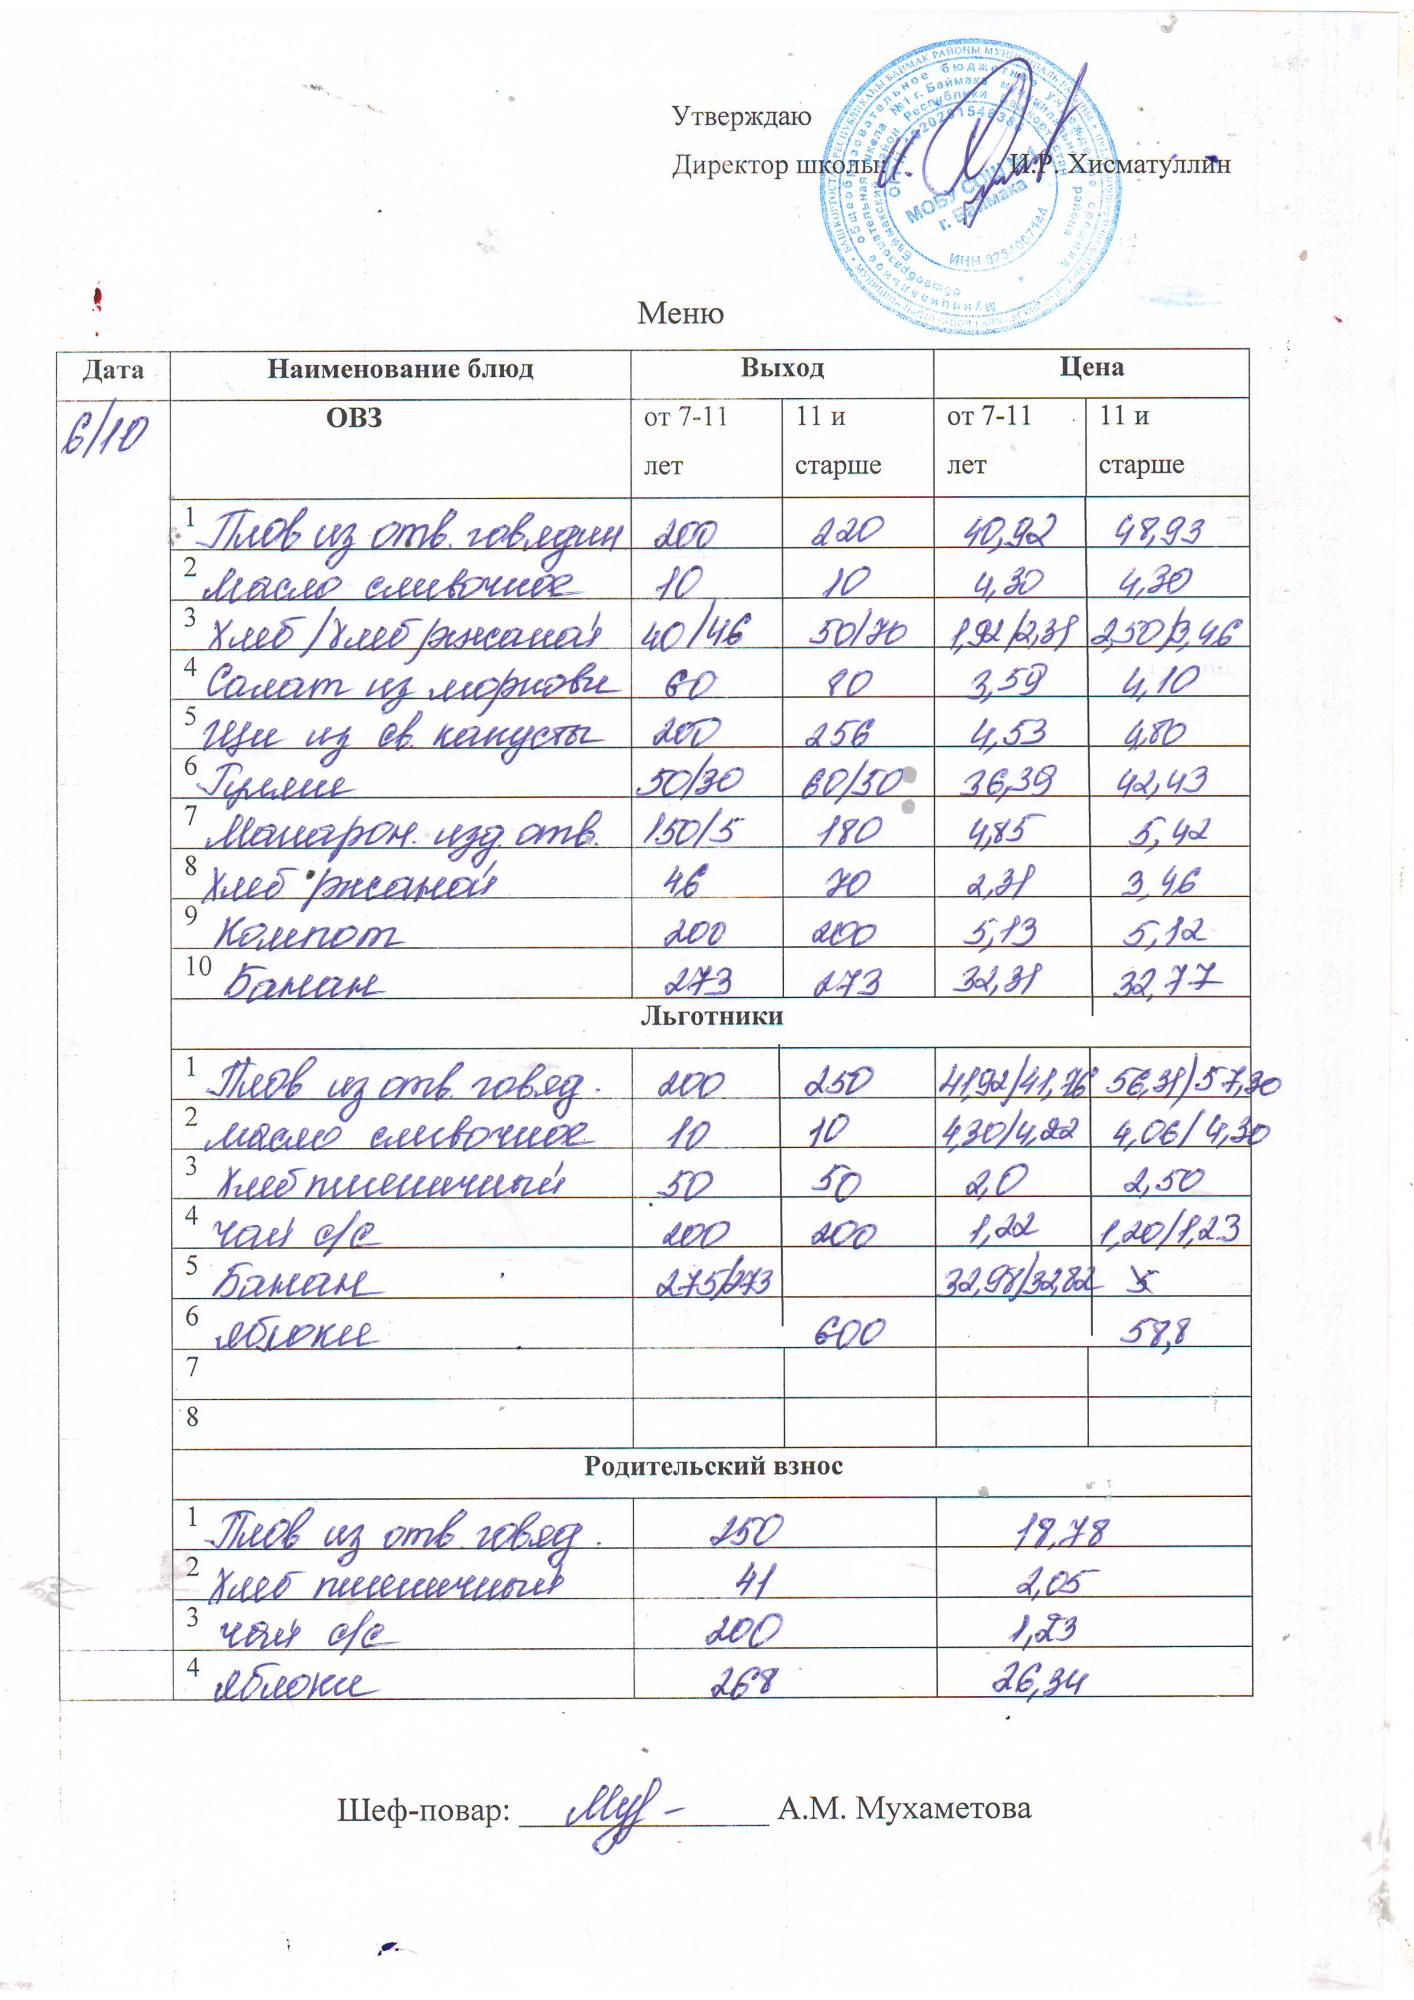 Утверждаю
Директор школы: И.Р. Хисматуллин
МОБУ СОШ №1
г. Баймака
Меню
Дата Наименование блюд Выход Цена
6/10 ОВЗ от 7-11 лет 11 и старше от 7-11 лет 11 и старше
1 Плов из отв. говядин 200 220 40,92 48,93
2 Масло сливочное 10 10 4,30 4,30
3 Хлеб/Хлеб ржаной 40/46 50/70 1,92/2,31 2,50/3,46
4 Салат из моркови 60 80 3,59 4,10
5 Щи из св. капусты 200 256 4,53 4,80
6 Гуляш 50/30 60/50 36,39 42,43
7 Макарон. изд. отв. 150/5 180 4,85 5,42
8 Хлеб ржаной 46 70 2,31 3,46
9 Компот 200 200 5,13 5,12
10 Банан 273 273 32,31 32,77
Льготники
1 Плов из отв. говяд. 200 250 41,92/41,76 56,31/57,30
2 Масло сливочное 10 10 4,30/4,22 4,06/4,30
3 Хлеб пшеничный 50 50 2,0 2,50
4 Чай с/с 200 200 1,22 1,20/1,23
5 Банан 275/273 32,98/32,82
6 Яблоки 600 58,8
7
8
Родительский взнос
1 Плов из отв. говяд. 250 18,78
2 Хлеб пшеничный 41 2,05
3 Чай с/с 200 1,23
4 Яблоки 268 26,34
Шеф-повар: А.М. Мухаметова